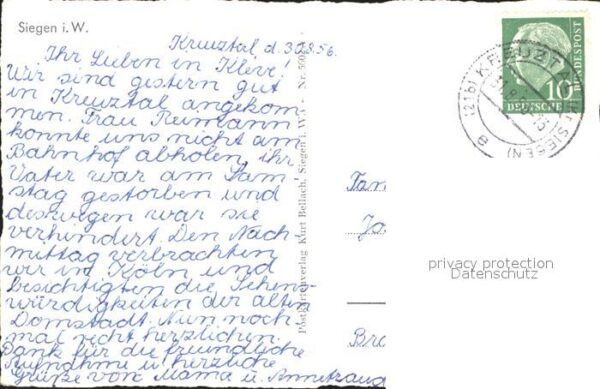 Siegen i.W.
Kreuztal d. 30.8.56.
Ihr Lieben in Kleve!
Wir sind gestern gut
in Kreuztal angekom
men. Frau Reimann
konnte uns nicht am
Bahnhof abholen, ihr
Vater war am Sam-
stag gestorben und
deswegen war sie
verhindert. Den Nach-
mittag verbrachten
wir in Köln und
besichtigten die Sehens-
würdigkeiten der alten
Domstadt. Nun noch-
mal recht herzlichen
Dank für die freundliche
Aufnahme u. herzliche
Grüße von Mama u.
Postkartenverlag Kurt Bellach, Siegen i. W.
Fam
Bro
10
DEUTSCHE
BUNDESPOST
(21b) KREUZTAL
privacy protection
Datenschutz